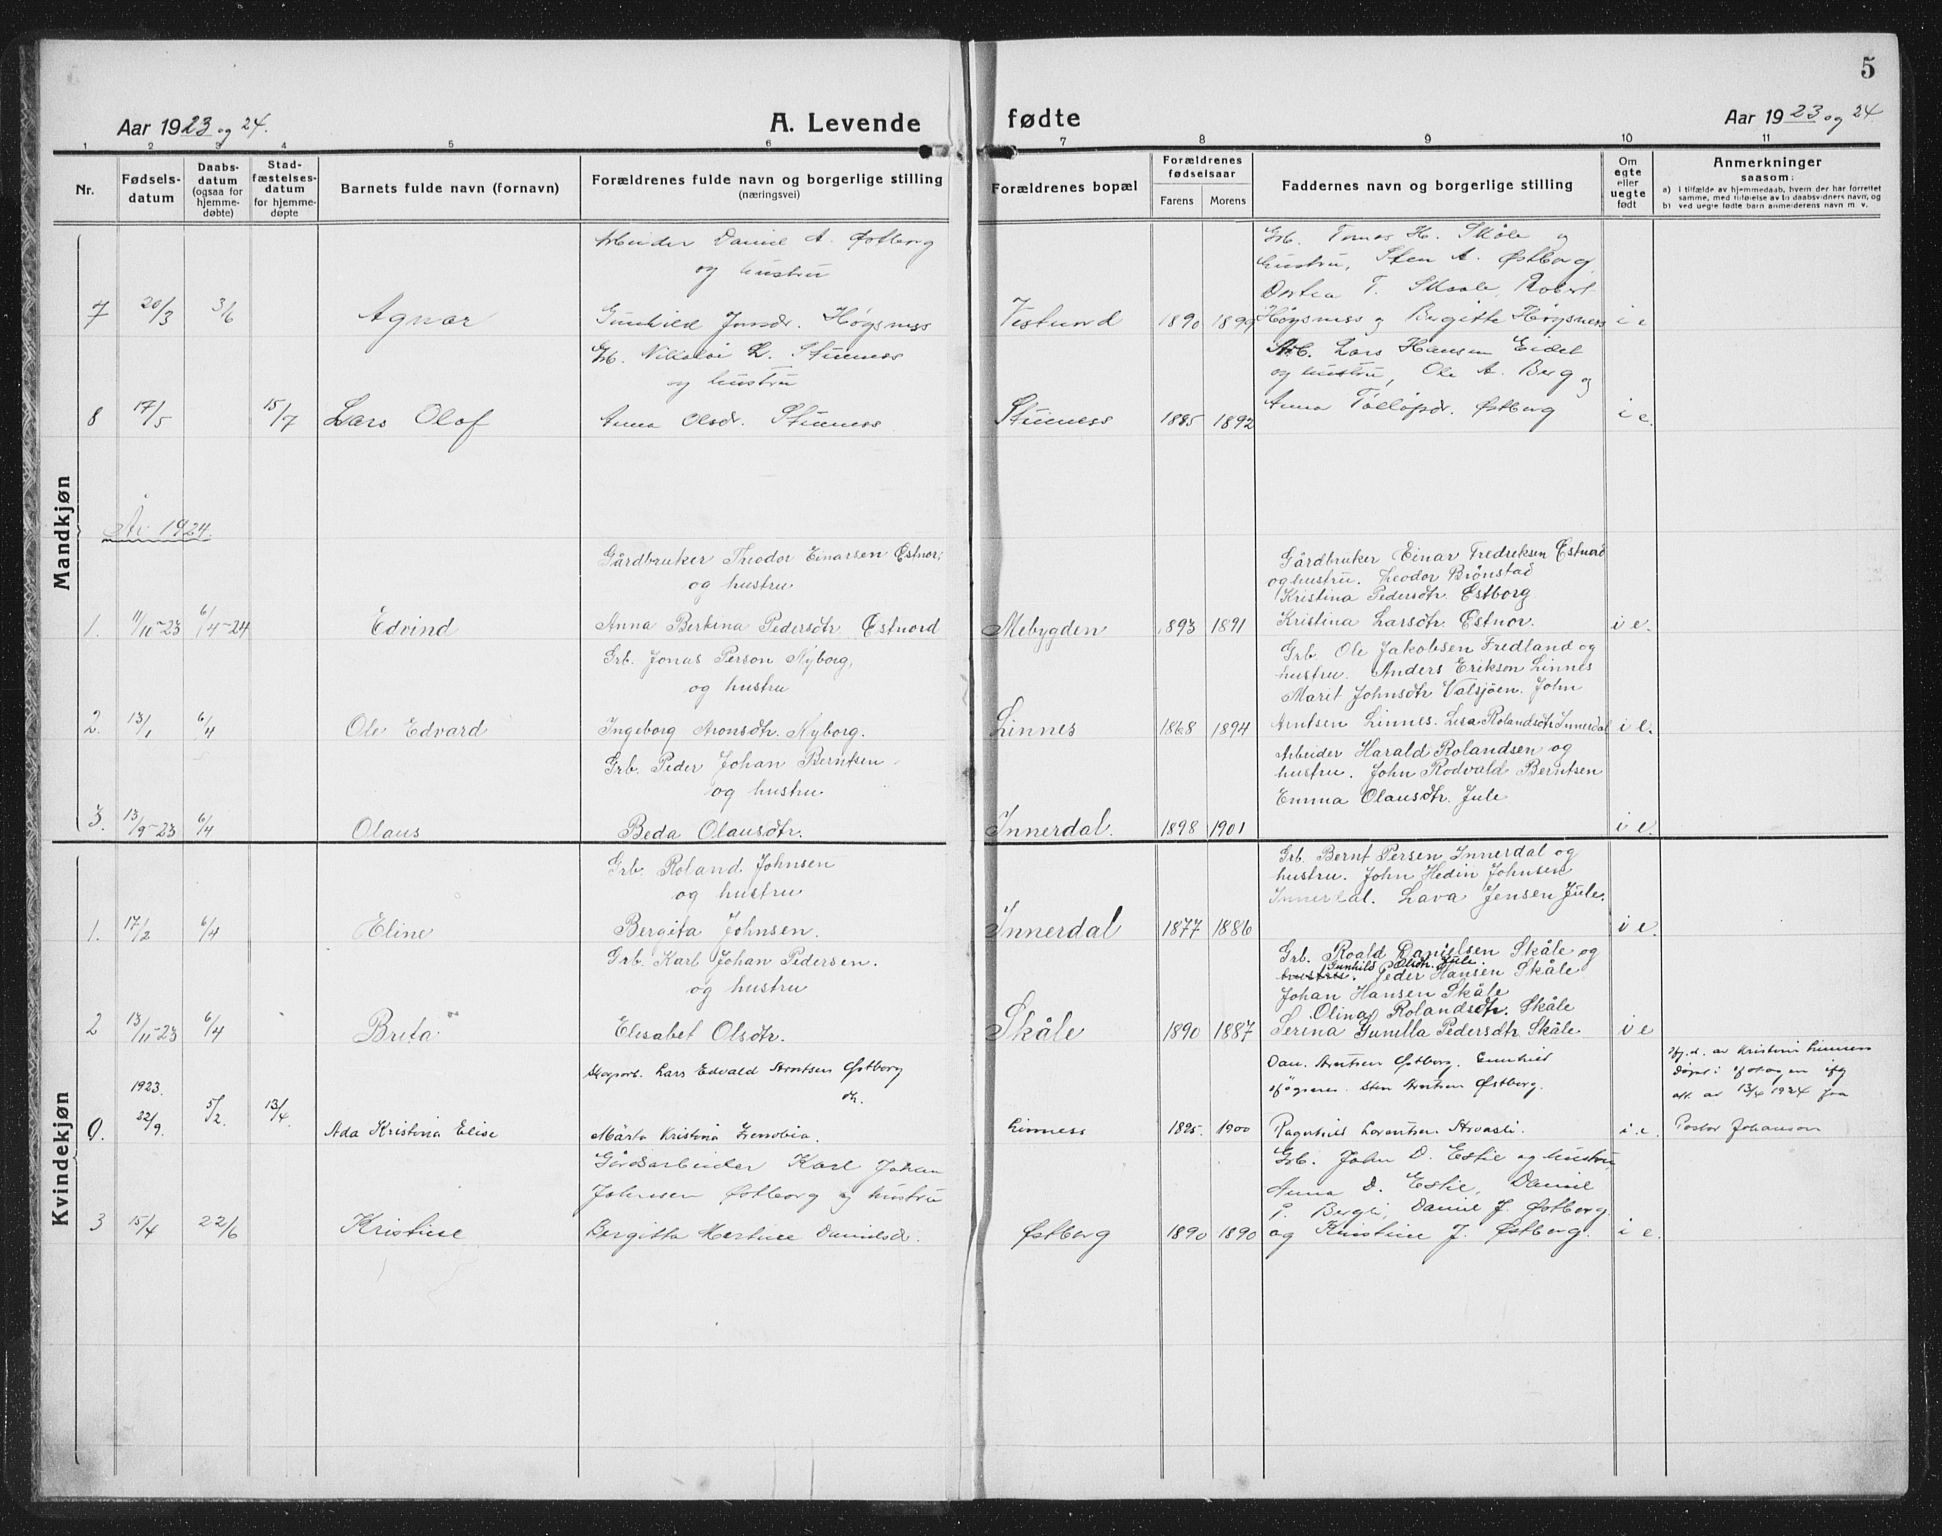 5
Aar 1923 og 24.
A. Levende
fødte
Aar 1923 og 24
1 2 3 4 5 6 7 8 9 10 11
Nr.
Fødsels-
datum
Daabs-
datum
(ogsaa for
hjemme-
døbte)
Stad-
fæstelses-
datum
for hjemme-
døpte
Barnets fulde navn (fornavn)
Forældrenes fulde navn og borgerlige stilling
(næringsvei)
Forældrenes bopæl
Forældrenes
fødselsaar
Farens Morens
Faddernes navn og borgerlige stilling
Om
egte
eller
uegte
født
Anmerkninger
saasom:
a) I tilfælde av hjemmedaab, hvem der har forrettet
samme, med tilføielse av to daabsvidners navn, og
b) ved uegte fødte barn anmelderens navn m. v.
Mandkjøn
Arbeider Daniel A. Østborg
og hustru
Grb. Tomas H. Skåle og
hustru, Sten A. Østborg,
Dortea T. Skaale, Robert
7 20/3 3/6 Agnar Gunhild Jonsdr. Høgsness Vestnord 1890 1899 Høgsness og Bergitte Høgsness i e
Grb. Nikolai L. Stinness
og hustru
Arb. Lars Hansen Eidet
og hustru, Ole A. Berg og
8 17/5 15/7 Lars Olof Anna Olsdr. Stinness Stinness 1885 1892 Anna Tollopdr. Østborg i e.
År 1924.
Gårdbruker Theodor Einarsen Estnor:
og hustru
Gårdbruker Einar Fredriksen Estnord
og hustru. Theodor Brønstad
Kristina Pedersdtr Estborg
1. 11/11-23 6/4-24 Edvind Anna Berkina Pedersdtr. Estnord Mebygden 1893 1891 Kristina Larsdtr. Estnor. i e.
Grb. Jonas Person Nyborg,
og hustru
Grb. Ole Jakobsen Fredland og
hustru. Anders Erikson Linnes
Marit Johnsdtr Valsjøen. John
2. 13/1 6/4 Ole Edvard Ingeborg Aronsdtr. Nyborg. Linnes 1868 1894 Arntsen Linnes. Lisa Rolandsdtr Innerdal i e.
Grb. Peder Johan Berntsen
og hustru
Arbeider Harald Rolandsen og
hustru. John Rodvald Berntsen
Emma Olausdtr. Jule
3. 13/9-23 6/4 Olaus Beda Olausdtr. Innerdal. 1898 1901 i e.
Kvindekjøn
Grb. Roland Johnsen
og hustru
Grb. Bernt Persen Innerdal og
hustru. John Hedin Johnsen
Innerdal. Lava Jensen Jule.
1. 17/2 6/4 Eline Bergita Johnsen. Innerdal 1877 1886 i e.
Grb. Karl Johan Pedersen.
og hustru
Grb. Roald Danielsen Skåle og
Gunhild Olsdtr. Jule.
Peder Hansen Skåle
Johan Hansen Skåle
Olina Rolandsdtr. Skåle
2 13/11-23 6/4 Brita Elisabet Olsdtr. Skåle 1890 1887 Serina Gunilla Pedersdtr Skåle i e
Skogsarb. Lars Edvald Arntsen Østborg
Dan. Arntsen Østborg.
Sten Arntsen Østborg.
av Kristina Linness
13/4 1924 fra
1923.
9. 22/9. 5/2. 13/4. Ada Kristina Elise Märta Kristina Zenobia. Linness 1895. 1900 Ragnhild Lorentsen Arvasli. i. e. Pastor Johanson
Gårdsarbeider Karl Johan
Johnsen Østborg og hustru
Grb. John D. Estie og hustru
Anna D. Estie, Daniel
P. Bergli, Daniel J. Østborg
3 15/4 22/6 Kristine Bergitta Martine Danielsdr. Østborg 1890 1890 og Kristine J. Østborg. i e.